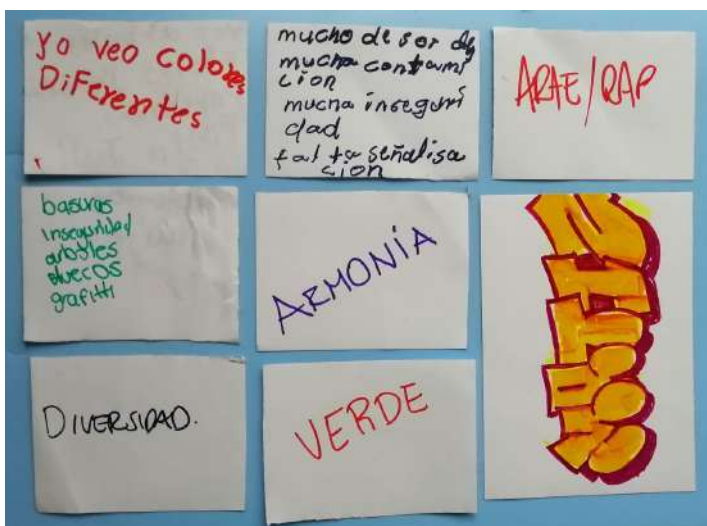 yo veo colores
Diferentes
mucho de sor den
mucha contami
cion
mucha inseguri
dad
falta señalisa
cion
ARTE/RAP
basuras
inseguridad
arboles
huecos
grafitti
ARMONÍA
DIVERSIDAD.
VERDE